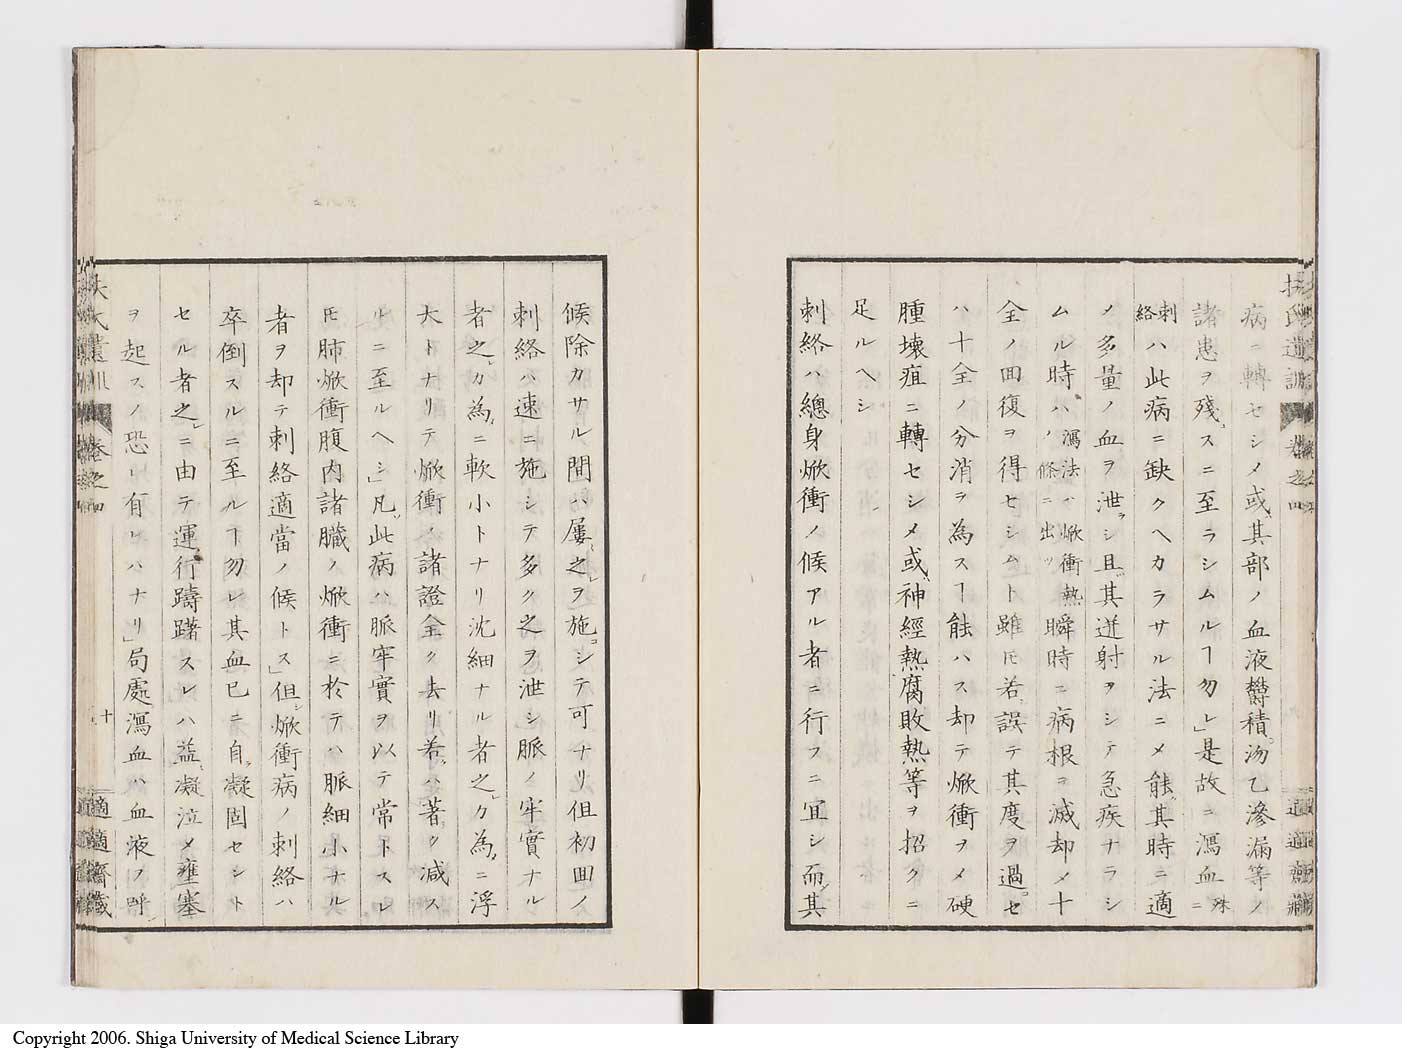 病ニ轉セシメ或其部ノ血液欝積湯乙滲漏等ノ
諸患ヲ殘スニ至ラシムルヿ勿レ」是故ニ瀉血殊ニ
刺絡ハ此病ニ缺クヘカラサル法ニメ能其時ニ適
ノ多量ノ血ヲ泄シ且其迸射ヲシテ急疾ナラシ
ムル時ハ瀉法ハ焮衝熱ノ條ニ出ツ瞬時ニ病根ヲ滅却メ十
全ノ回復ヲ得セシムト雖モ若誤テ其度ヲ過セ
ハ十全ノ分消ヲ為スヿ能ハス却テ焮衝ヲメ硬
腫壞疽ニ轉セシメ或神經熱腐敗熱等ヲ招クニ
足ルヘシ
刺絡ハ總身焮衝ノ候アル者ニ行フニ宜シ而其
候除カサル間ハ屢之ヲ施シテ可ナリ但初回ノ
刺絡ハ速ニ施シテ多ク之ヲ泄シ脈ノ牢實ナル
者之カ為ニ軟小トナリ沈細ナル者之カ為ニ浮
大トナリテ焮衝ノ諸證全ク去リ若ハ著ク減ス
ルニ至ルヘシ」凡此病ハ脈牢實ヲ以テ常トスレ
モ肺焮衝腹内諸臟ノ焮衝ニ於テハ脈細小ナル
者ヲ却テ刺絡適當ノ候トス」但焮衝病ノ刺絡ハ
卒倒スルニ至ルヿ勿レ其血已ニ自凝固セント
セル者之ニ由テ運行躊躇スレハ益凝泣メ壅塞
ヲ起スノ恐レ有レハナリ」局處瀉血ハ血液ノ呼
扶氏遺訓 卷之四
十
適適齋藏
Copyright 2006. Shiga University of Medical Science Library